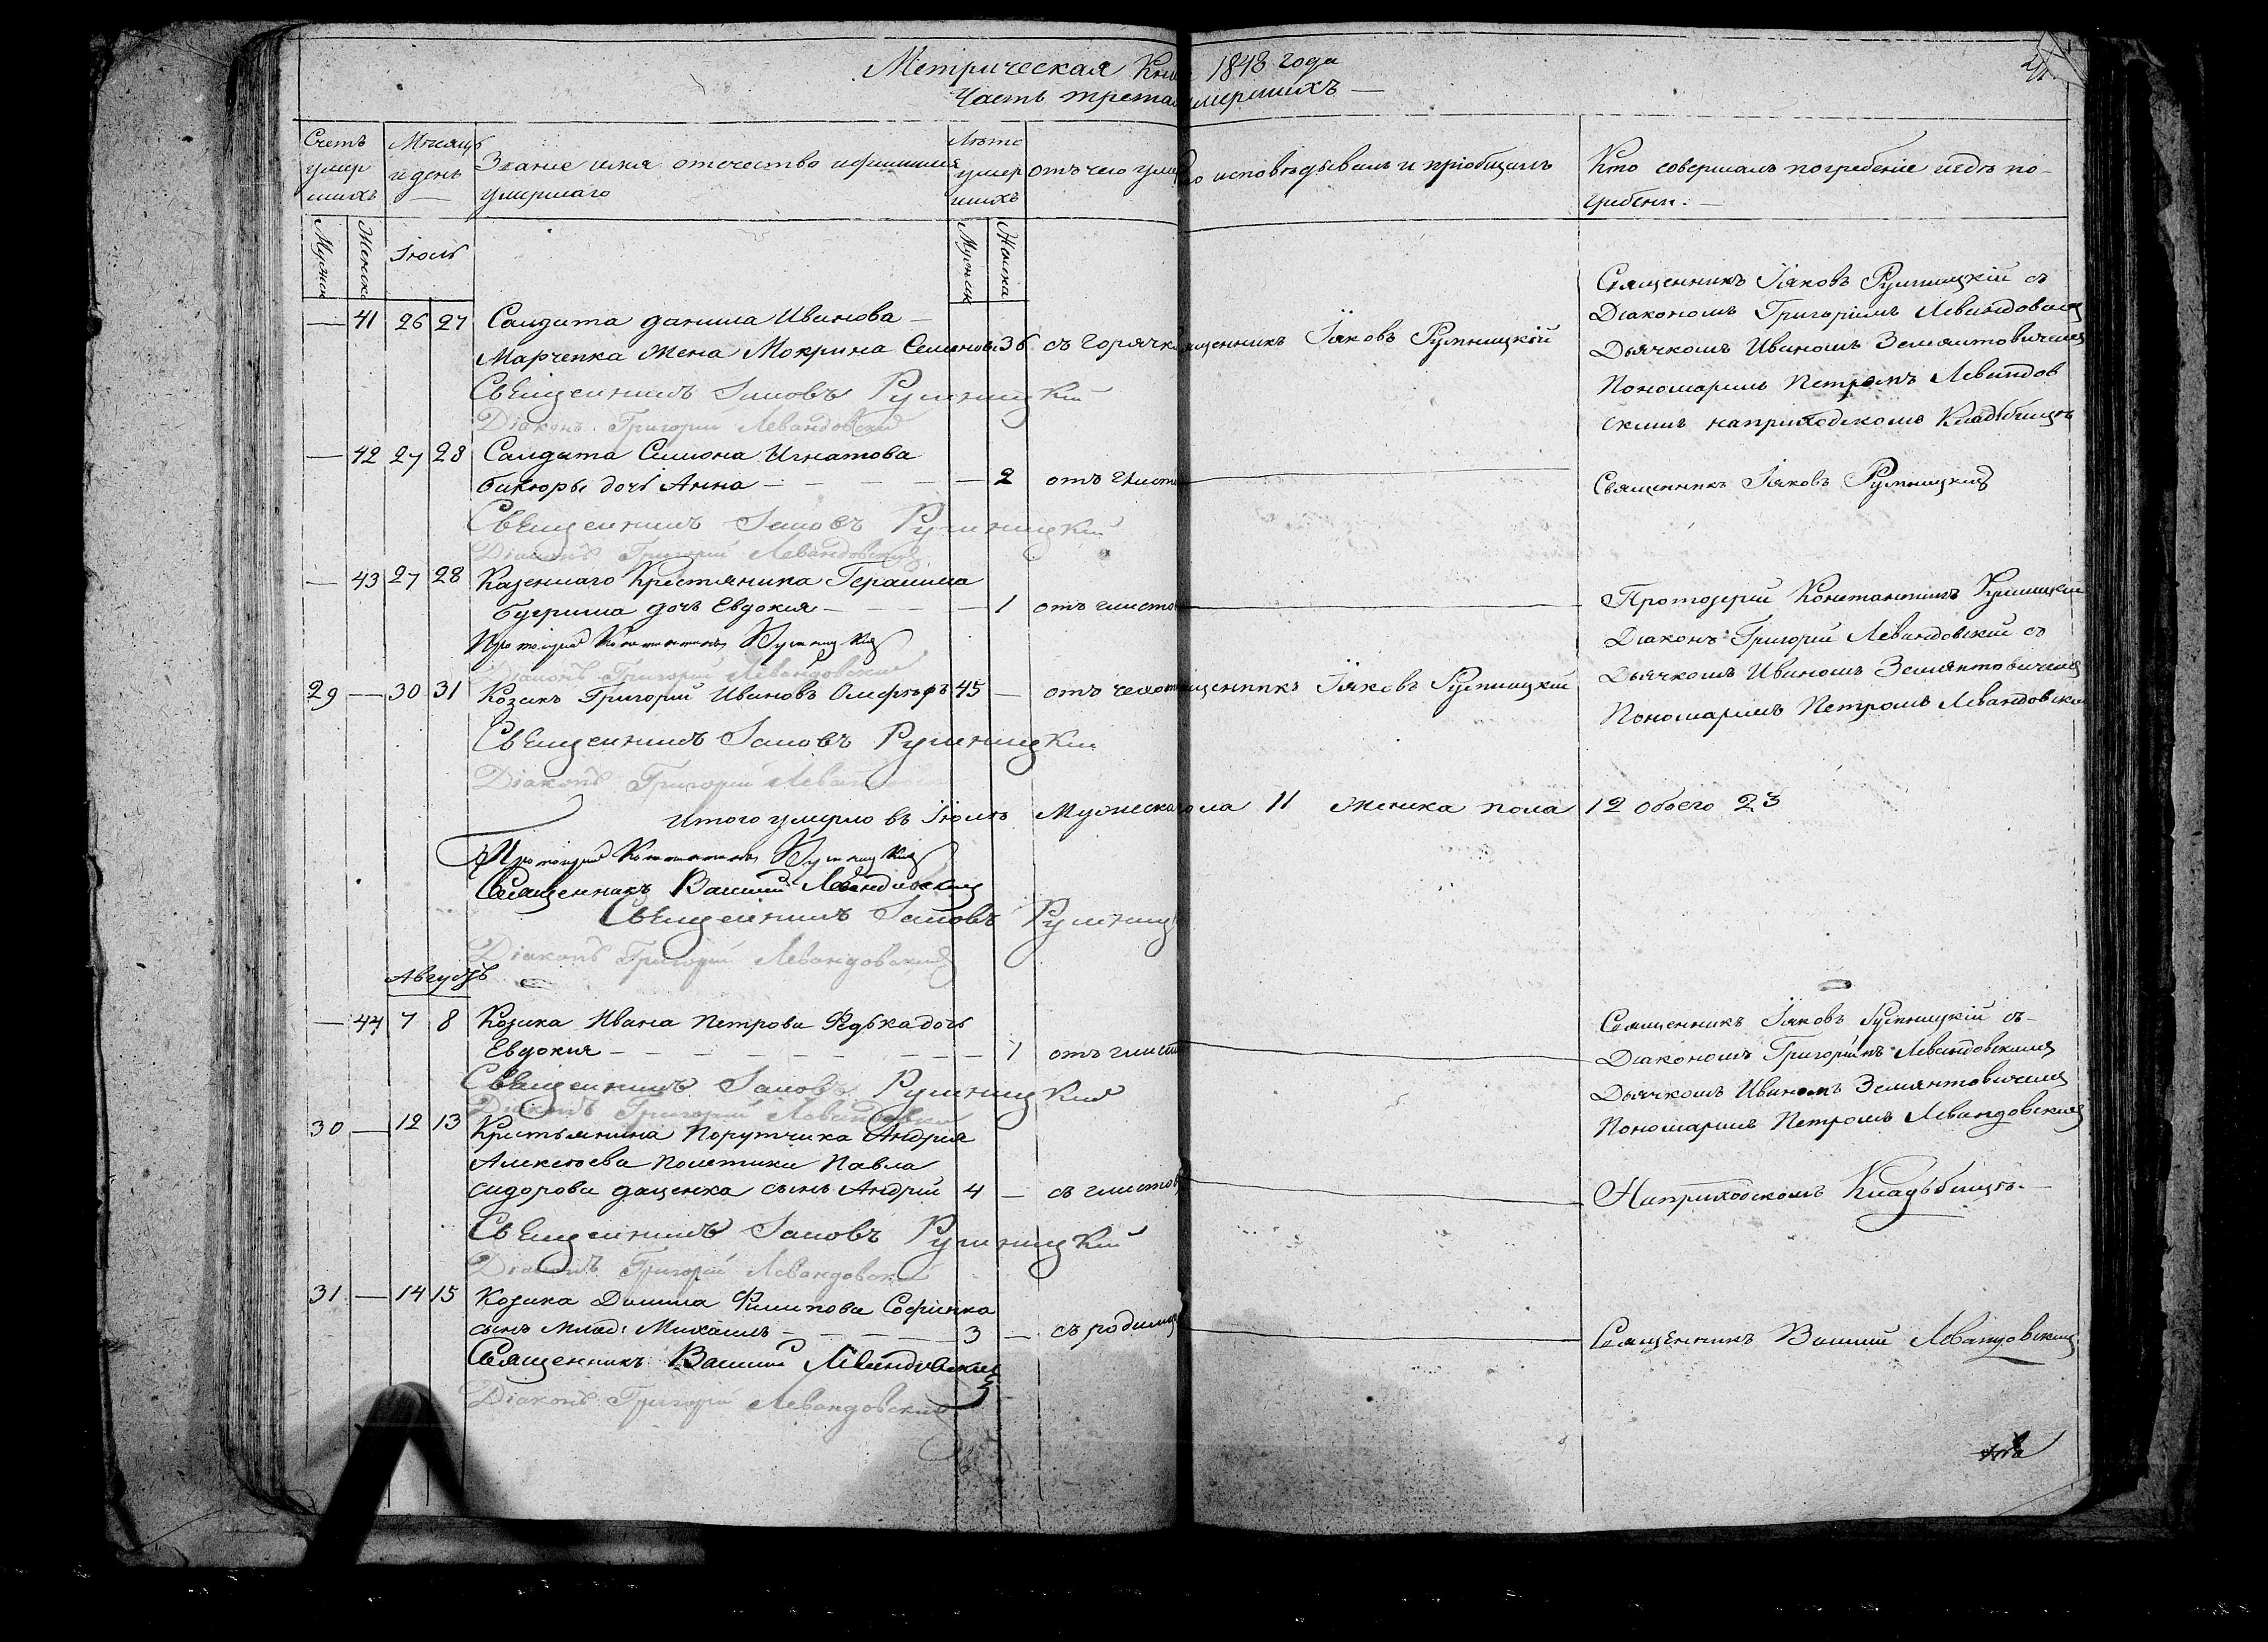 Метрическая Кни 1848 года
Часть третая умершихъ
Счетъ умер шихъ
Мѣсяцъ и день
Званіе имя отечество и фамилия умершаго
Лѣта умер шихъ
отъ чего умер
исповѣдывалъ и пріобщалъ
Кто совершалъ погребеніе и гдѣ по-
гребены.
Мужск Женска
Іюль
Мужска Женска
— 41 26 27 Салдата данила Иванова —
Марченка жена Мокрина Семенова 36 съ горячк щенникъ Іяковъ Румницкій
Священникъ Іяковъ Румницкій съ
Діакономъ Григоріимъ Левандовским
Дьячкомъ Иваномъ Земянтовичемъ
Пономаримъ Петромъ Левандов
скимъ наприходскомъ Кладбищѣ
Священникъ Іаковъ Румницкій
Діаконъ Григорий Левандовский
— 42 27 28 Салдата Симиона Игнатова
дочь Анна — — 2 отъ глист
Священникъ Іяковъ Румницкий
Священникъ Іаковъ Румницкий
Діаконъ Григорий Левандовский
— 43 27 28 Казеннаго Крестянина Герасима
дочь Евдокия — — 1 отъ глисто
Протоіерей Константинъ Румницкий
Діаконъ Григорий Левандовский съ
Дьячкомъ Иваномъ Земянтовичемъ
Пономаримъ Петромъ Левандовским
Протоіерей Константинъ Румницкий
Діаконъ Григорий Левандовский
29 — 30 31 Козакъ Григорий Ивановъ 45 — отъ щенникъ Іяковъ Румницкій
Священникъ Іаковъ Румницкий
Діаконъ Григорий Леван
Итого умерло въ Іюлѣ Мужеска пола 11 женска пола 12 обоего 23
Протоіерей Константинъ Румницкий
Священникъ Василий Левандовский
Священникъ Іаковъ Румниц
Діаконъ Григорий Левандовский
Августъ
— 44 7 8 Козака Ивана Петрова Федька дочь
Евдокия — — 1 отъ глист
Священникъ Іяковъ Румницкій съ-
Діакономъ Григоріимъ Левандовскимъ
Дьячкомъ Иваномъ Земянтовичемъ
Пономаримъ Петромъ Левандовским
Священникъ Іаковъ Румницкий
Діаконъ Григорий Левандовский
30 — 12 13 Крестьянина Порутчика Андрия
Алексѣева Полетики Павла
сидорова даценка сынъ Андрій 4 — съ глистов
Наприходскомъ Кладьбищѣ.
Священникъ Іаковъ Румницкий
Діаконъ Григорий Левандовский
31 — 14 15 Козака Данила Филипова Софіенка
сынъ млад: Михаилъ — — 3 — съ родимц
Священникъ Василий Левандовский
Священникъ Василий Левандовский
Діаконъ Григорий Левандовский